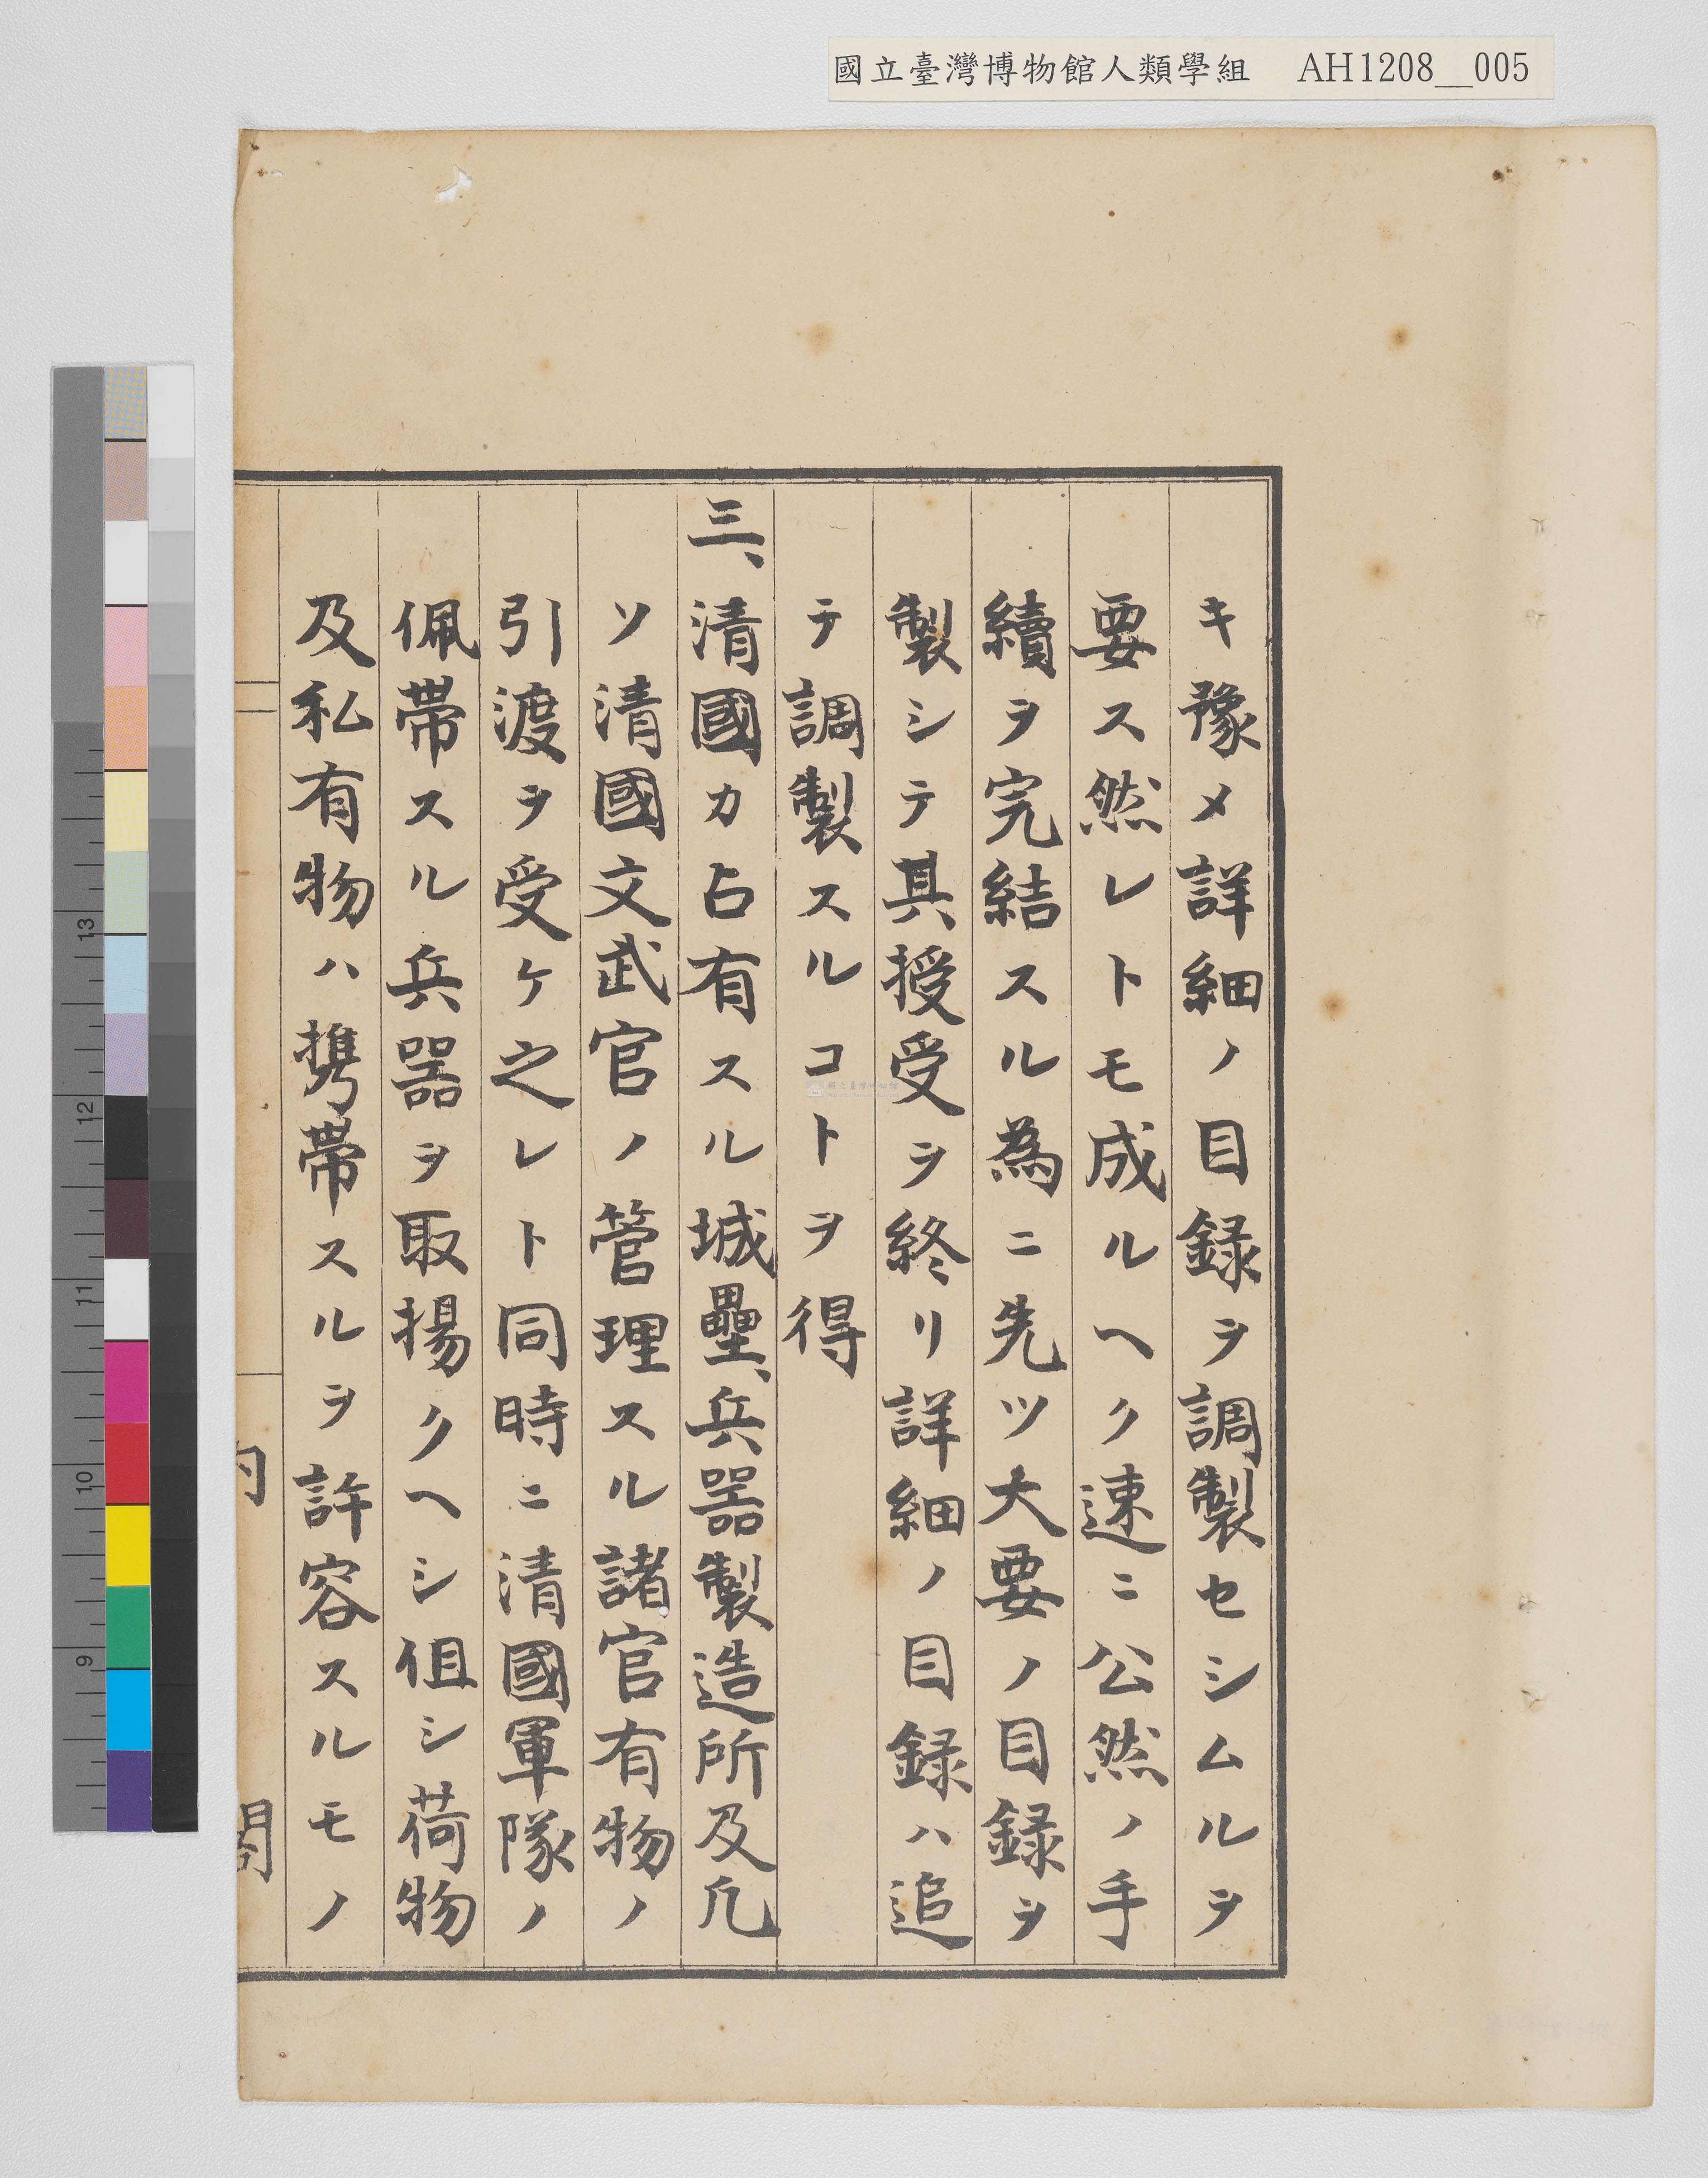 國立臺灣博物館人類學組 AH1208__005
キ豫メ詳細ノ目録ヲ調製セシムルヲ
要ス然レトモ成ルヘク速ニ公然ノ手
續ヲ完結スル為ニ先ツ大要ノ目録ヲ
製シテ其授受ヲ終リ詳細ノ目録ハ追
テ調製スルコトヲ得
三、清國カ占有スル城壘、兵器製造所及凢
ソ清國文武官ノ管理スル諸官有物ノ
引渡ヲ受ケ之レト同時ニ清國軍隊ノ
佩帶スル兵器ヲ取揚クヘシ伹シ荷物
及私有物ハ携帶スルヲ許容スルモノ
13
12
11
10
9